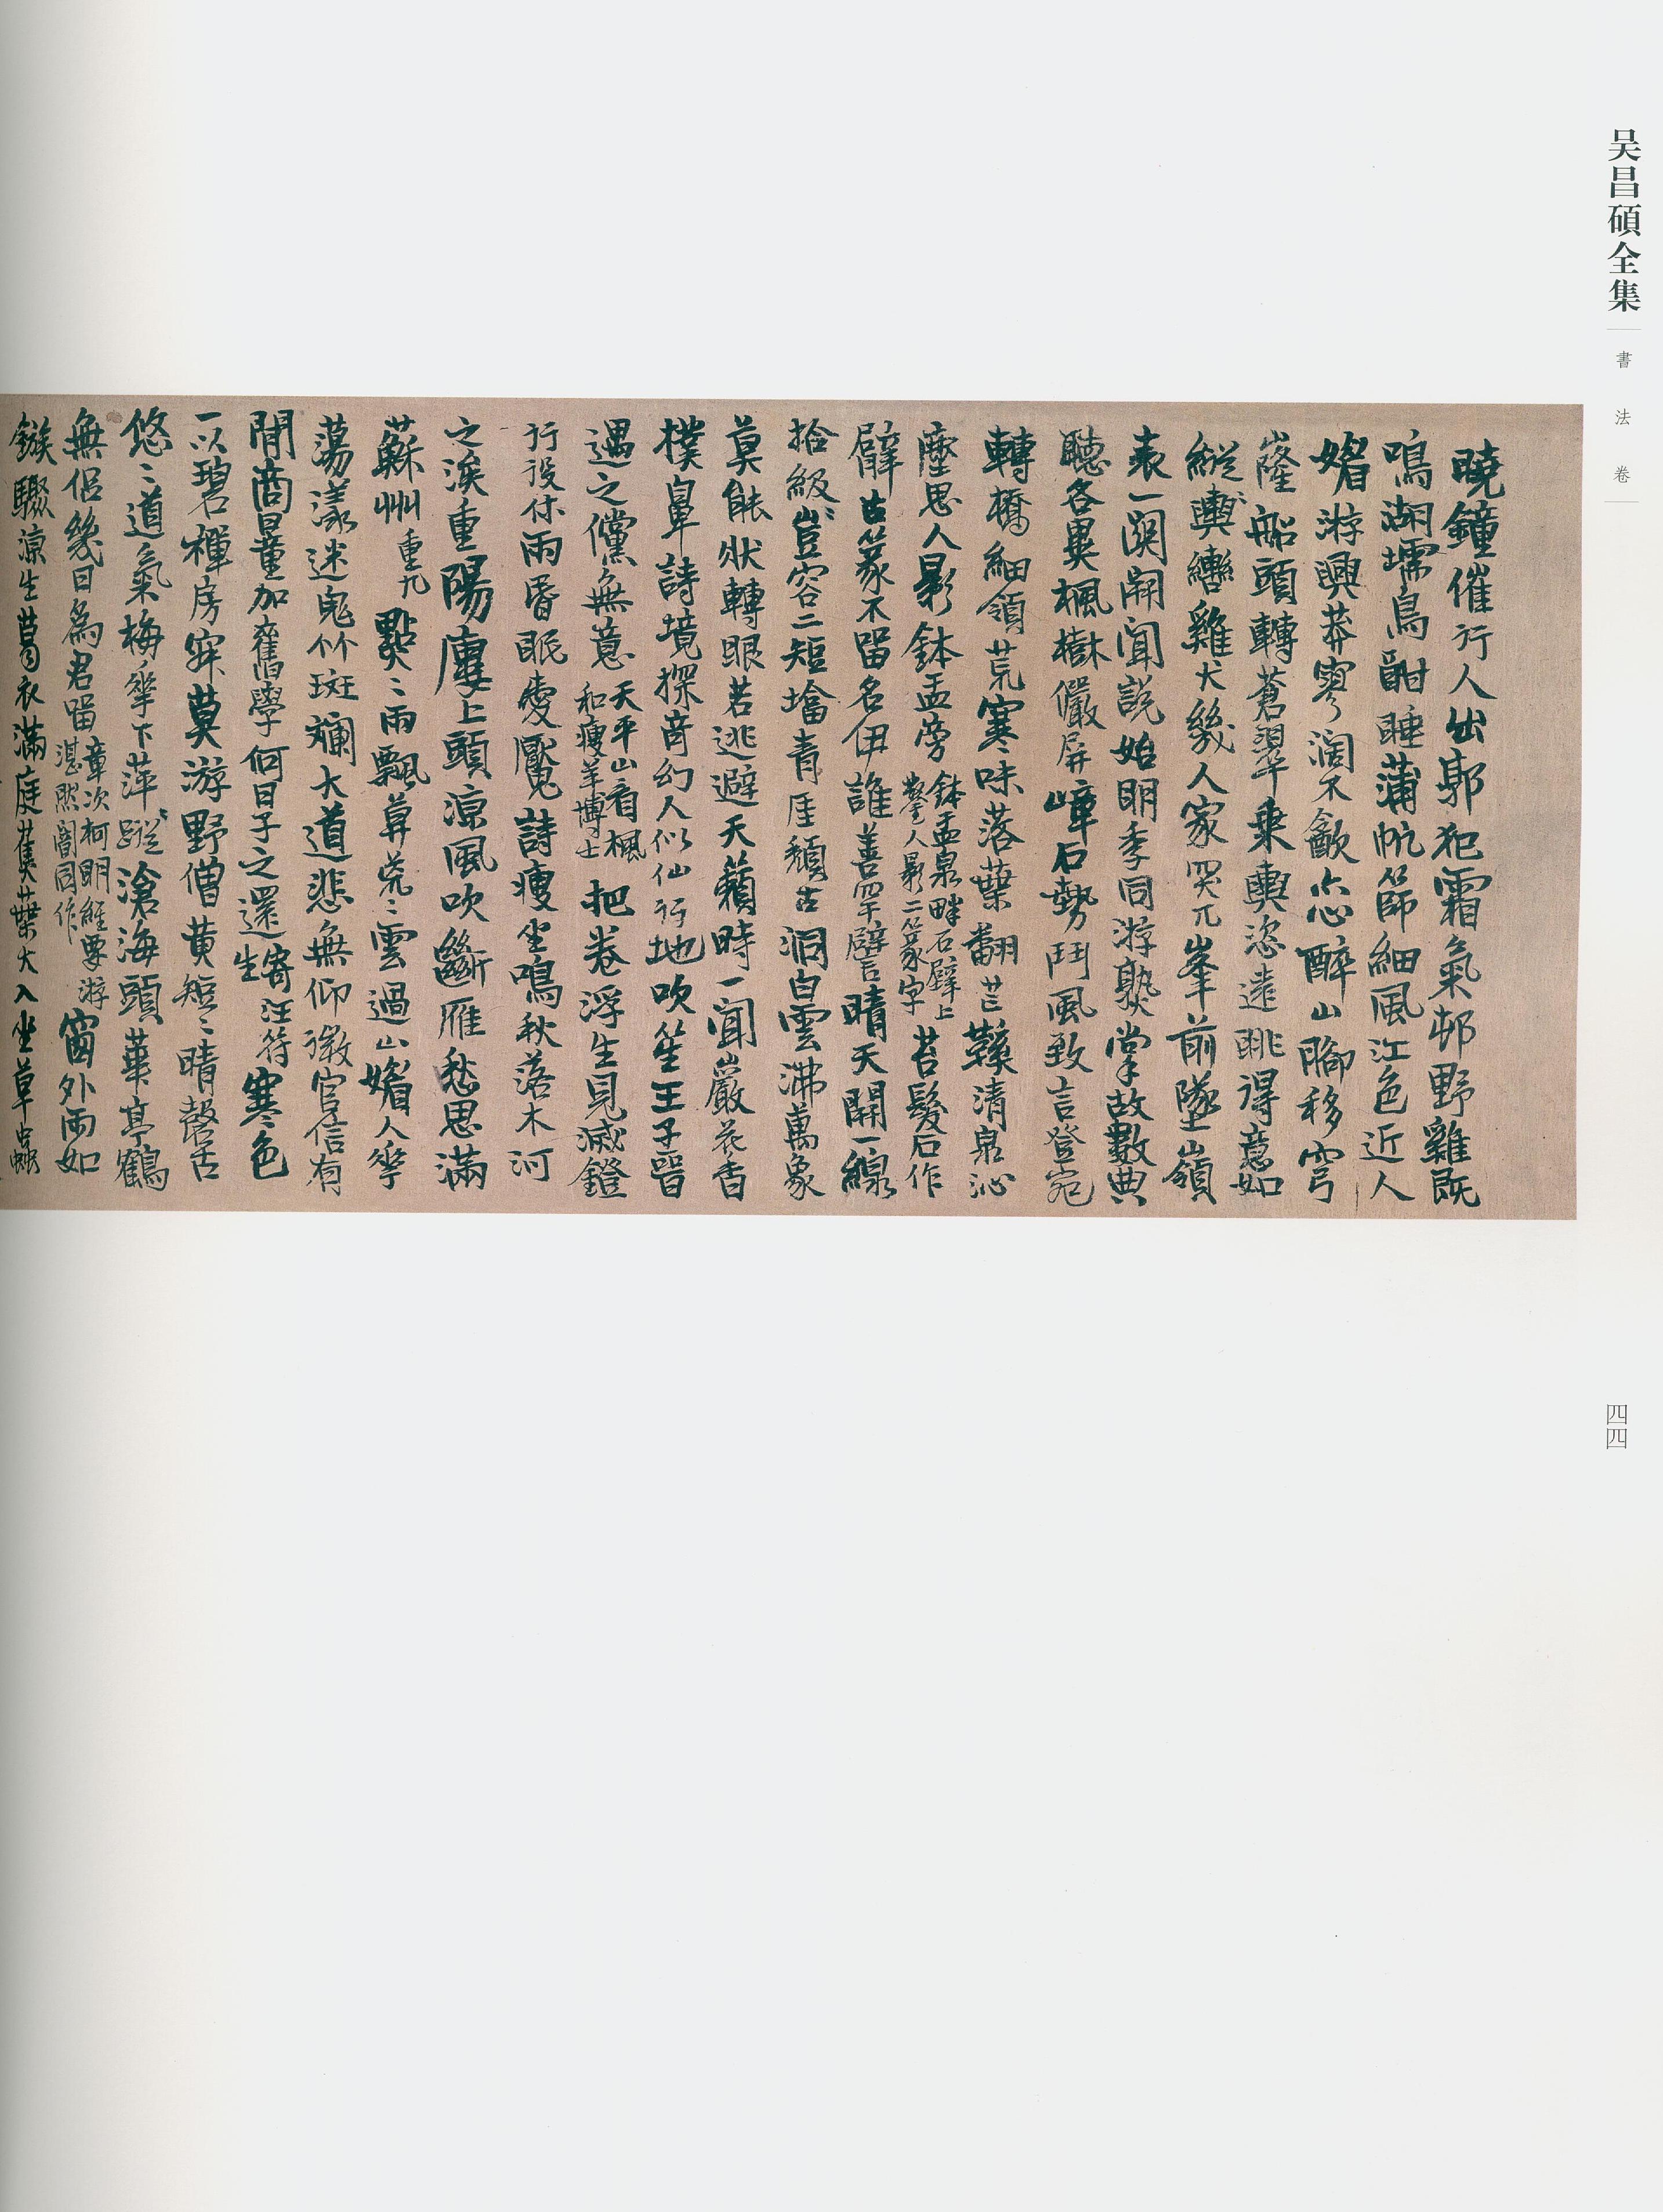 吴昌碩全集
書法卷
曉鐘催行人出郭犯霜氣邨野雞既
鳴湖壖鳥酣睡蒲帆篩細風江色近人
媚游興莽寥闊不飲心醉山腳移穹
窿船頭轉蒼翠乘輿恣遠眺得意如
縱轡雞犬幾人家突兀峯前墜嶺
表一關開聞說始明季同游孰掌故數典
聽各異楓樹儼屏嶂石勢鬥風致言登宛
轉橋細領荒寒味落葉翻芒鞵清泉沁
塵思人影鉢盂旁鉢盂泉畔石壁上鑿人影二篆字苔髮石作
辟古篆不留名伊誰善罕譬晴天開一線
拾級豈容二短墻青厓頹古洞白雲沸萬象
莫能狀轉眼若逃避天籟時一聞巖花香
撲鼻詩境探奇幻人似仙行地吹笙王子晉
遇之儻無意天平山看楓和瘦羊博士把卷浮生見滅鐙
行役休雨昏眠愛魘詩瘦坐鳴秋落木河
之渓重陽廔上頭涼風吹斷雁愁思滿
蘇州重九點〻雨飄萍荒〻雲過山媚人華
蕩漾迷鬼竹斑斕大道悲無仰微官信有
閒商量加舊學何日子之還寄汪符生寒色
一以碧禪房寂莫游野僧黄短〻晴磬古
悠〻道氣梅華下萍蹤滄海頭華亭鶴
無侶幾日爲君留章次柯明經要游湛然闇同作窗外雨如
鏃驟涼生葛衣滿庭蕉葉大入坐草蟲
四四